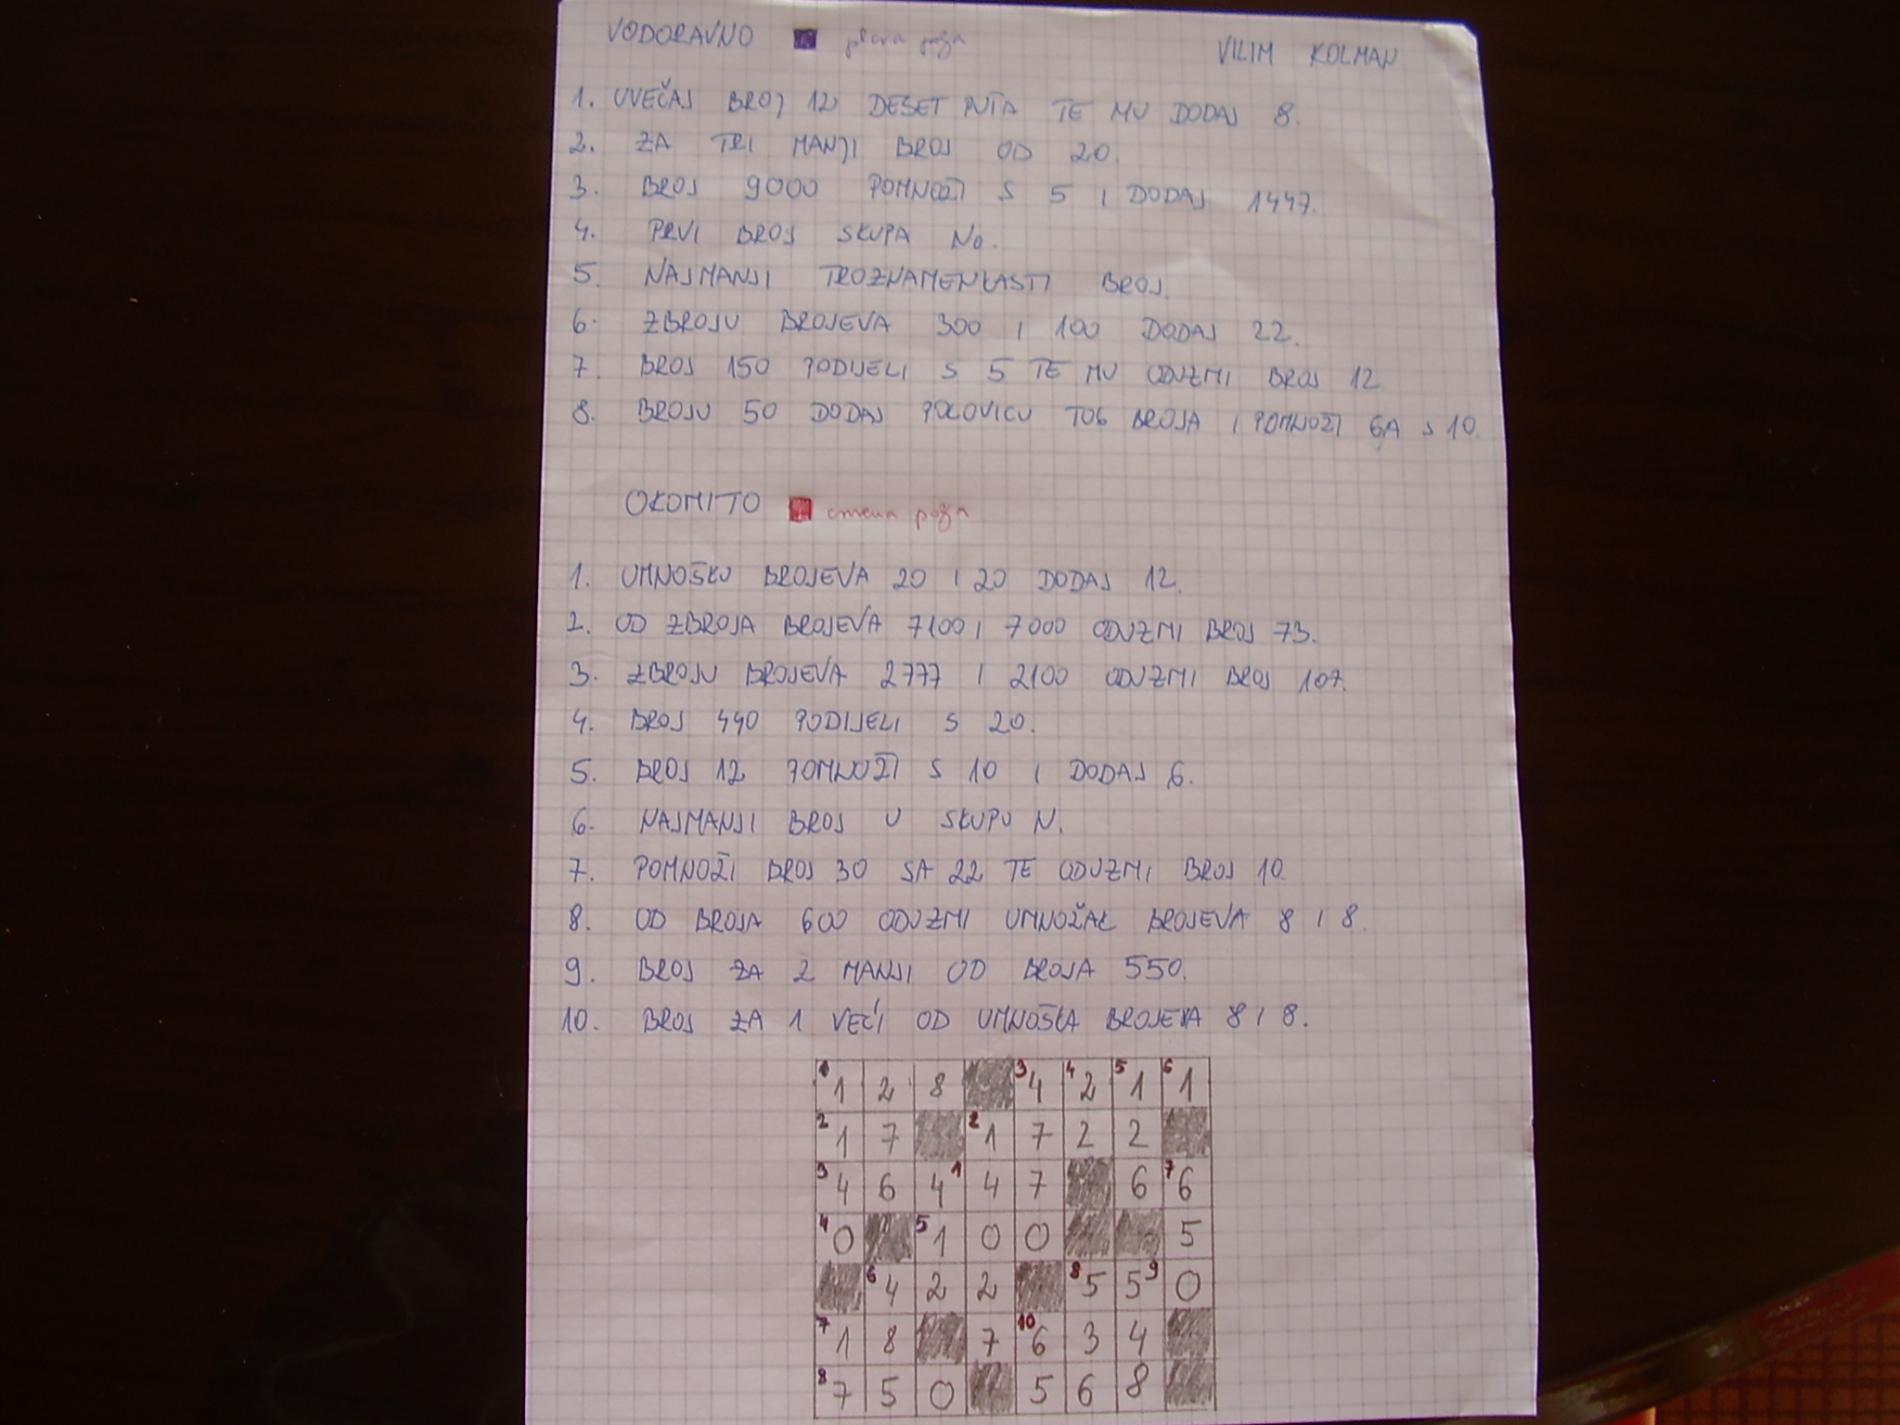 VODORAVNO plava boja
VILIM KOLMAN
1. UVEČAJ BROJ 12 DESET PUTA TE MU DODAJ 8.
2. ZA TRI MANJI BROJ OD 20.
3. BROJ 9000 POMNOŽI S 5 I DODAJ 1447.
4. PRVI BROJ SKUPA No.
5. NAJMANJI TROZNAMENKASTI BROJ.
6. ZBROJU BROJEVA 300 I 100 DODAJ 22.
7. BROJ 150 PODIJELI S 5 TE MU ODUZMI BROJ 12.
8. BROJU 50 DODAJ POLOVICU TOG BROJA I POMNOŽI GA S 10.
OKOMITO crvena boja
1. UMNOŠKU BROJEVA 20 I 20 DODAJ 12.
2. OD ZBROJA BROJEVA 7100 I 7000 ODUZMI BROJ 73.
3. ZBROJU BROJEVA 2777 I 2100 ODUZMI BROJ 107.
4. BROJ 440 PODIJELI S 20.
5. BROJ 12 POMNOŽI S 10 I DODAJ 6.
6. NAJMANJI BROJ U SKUPU N.
7. POMNOŽI BROJ 30 SA 22 TE ODUZMI BROJ 10.
8. OD BROJA 600 ODUZMI UMNOŽAK BROJEVA 8 I 8.
9. BROJ ZA 2 MANJI OD BROJA 550.
10. BROJ ZA 1 VEĆI OD UMNOŠKA BROJEVA 8 I 8.
1 1 2 8 3 4 4 2 5 1 6 1
2 1 7 2 1 7 2 2
3 4 6 4 1 4 7 6 7 6
4 0 5 1 0 0 5
6 4 2 2 8 5 5 9 0
7 1 8 7 10 6 3 4
8 7 5 0 5 6 8